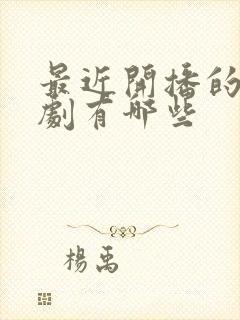 最近開播的
劇有哪些
楊禹